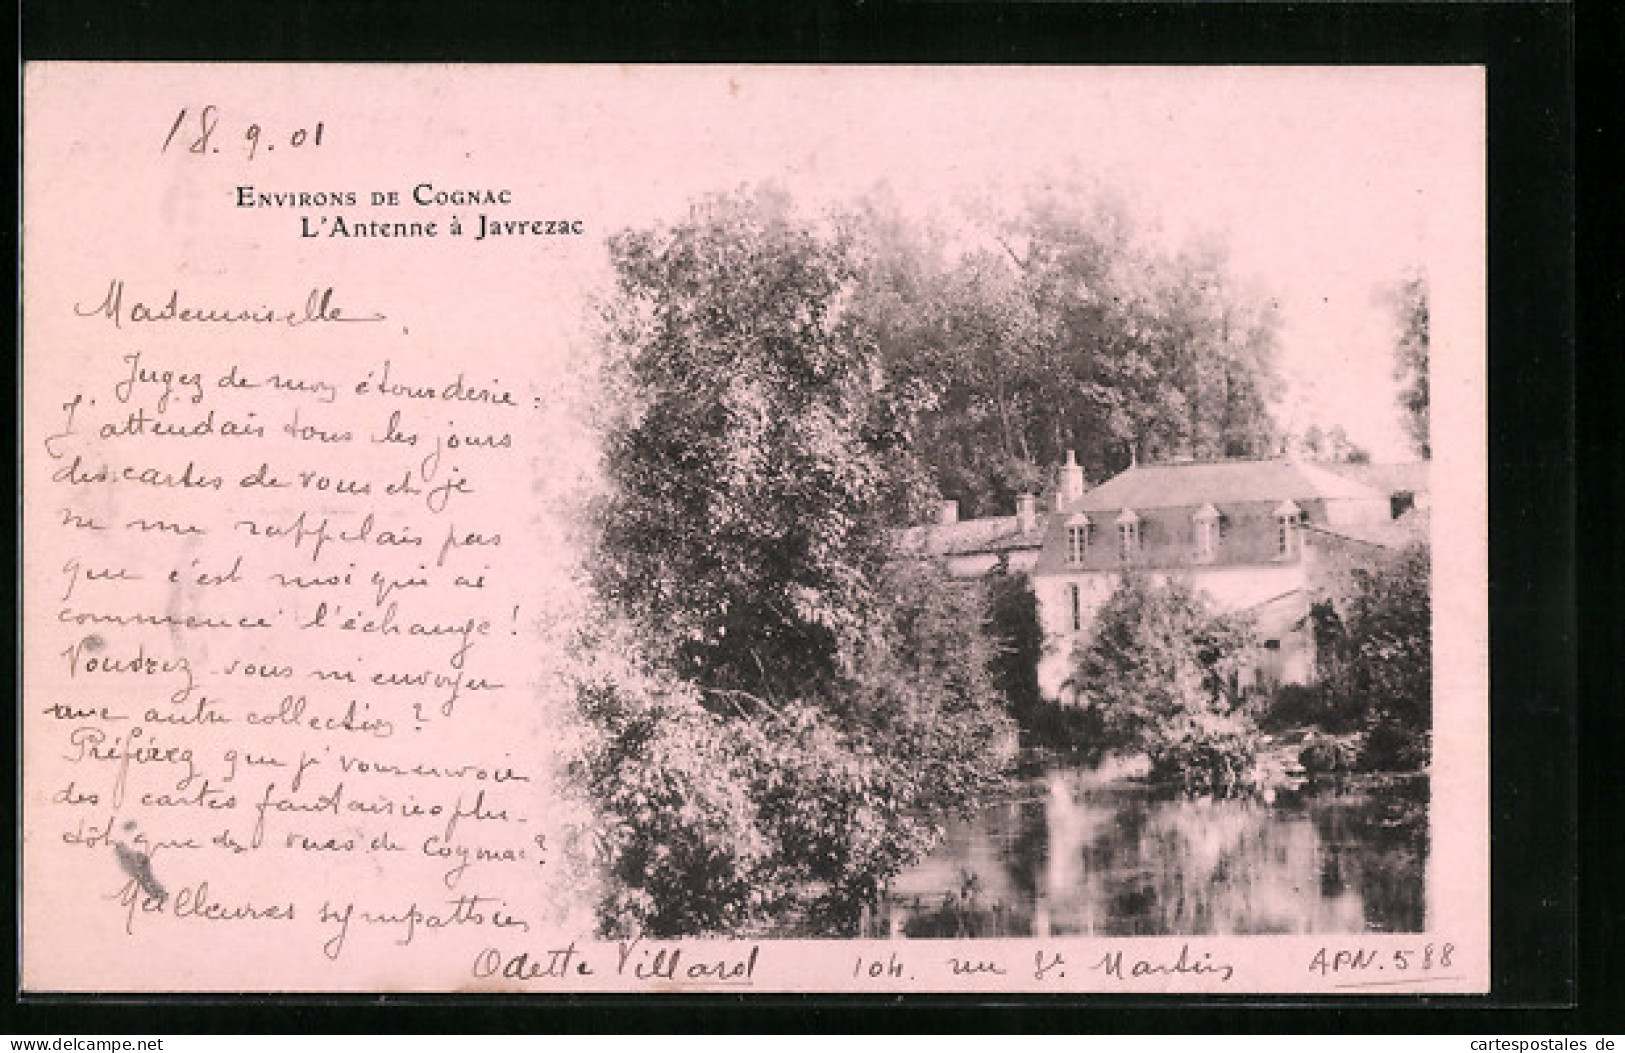 18.9.01
Environs de Cognac
L'Antenne à Javrezac
Mademoiselle,
Jugez de mon étourderie :
J'attendais tous les jours
des cartes de vous et je
ne me rappelais pas
que c'est moi qui ai
commencé l'échange !
Voudrez-vous m'envoyer
une autre collection ?
Préférez que je vous envoie
des cartes fantaisies plu-
tôt que des vues de Cognac ?
Meilleures sympathies
Odette Villard 104. rue St. Martin APN. 588
cartespostales de